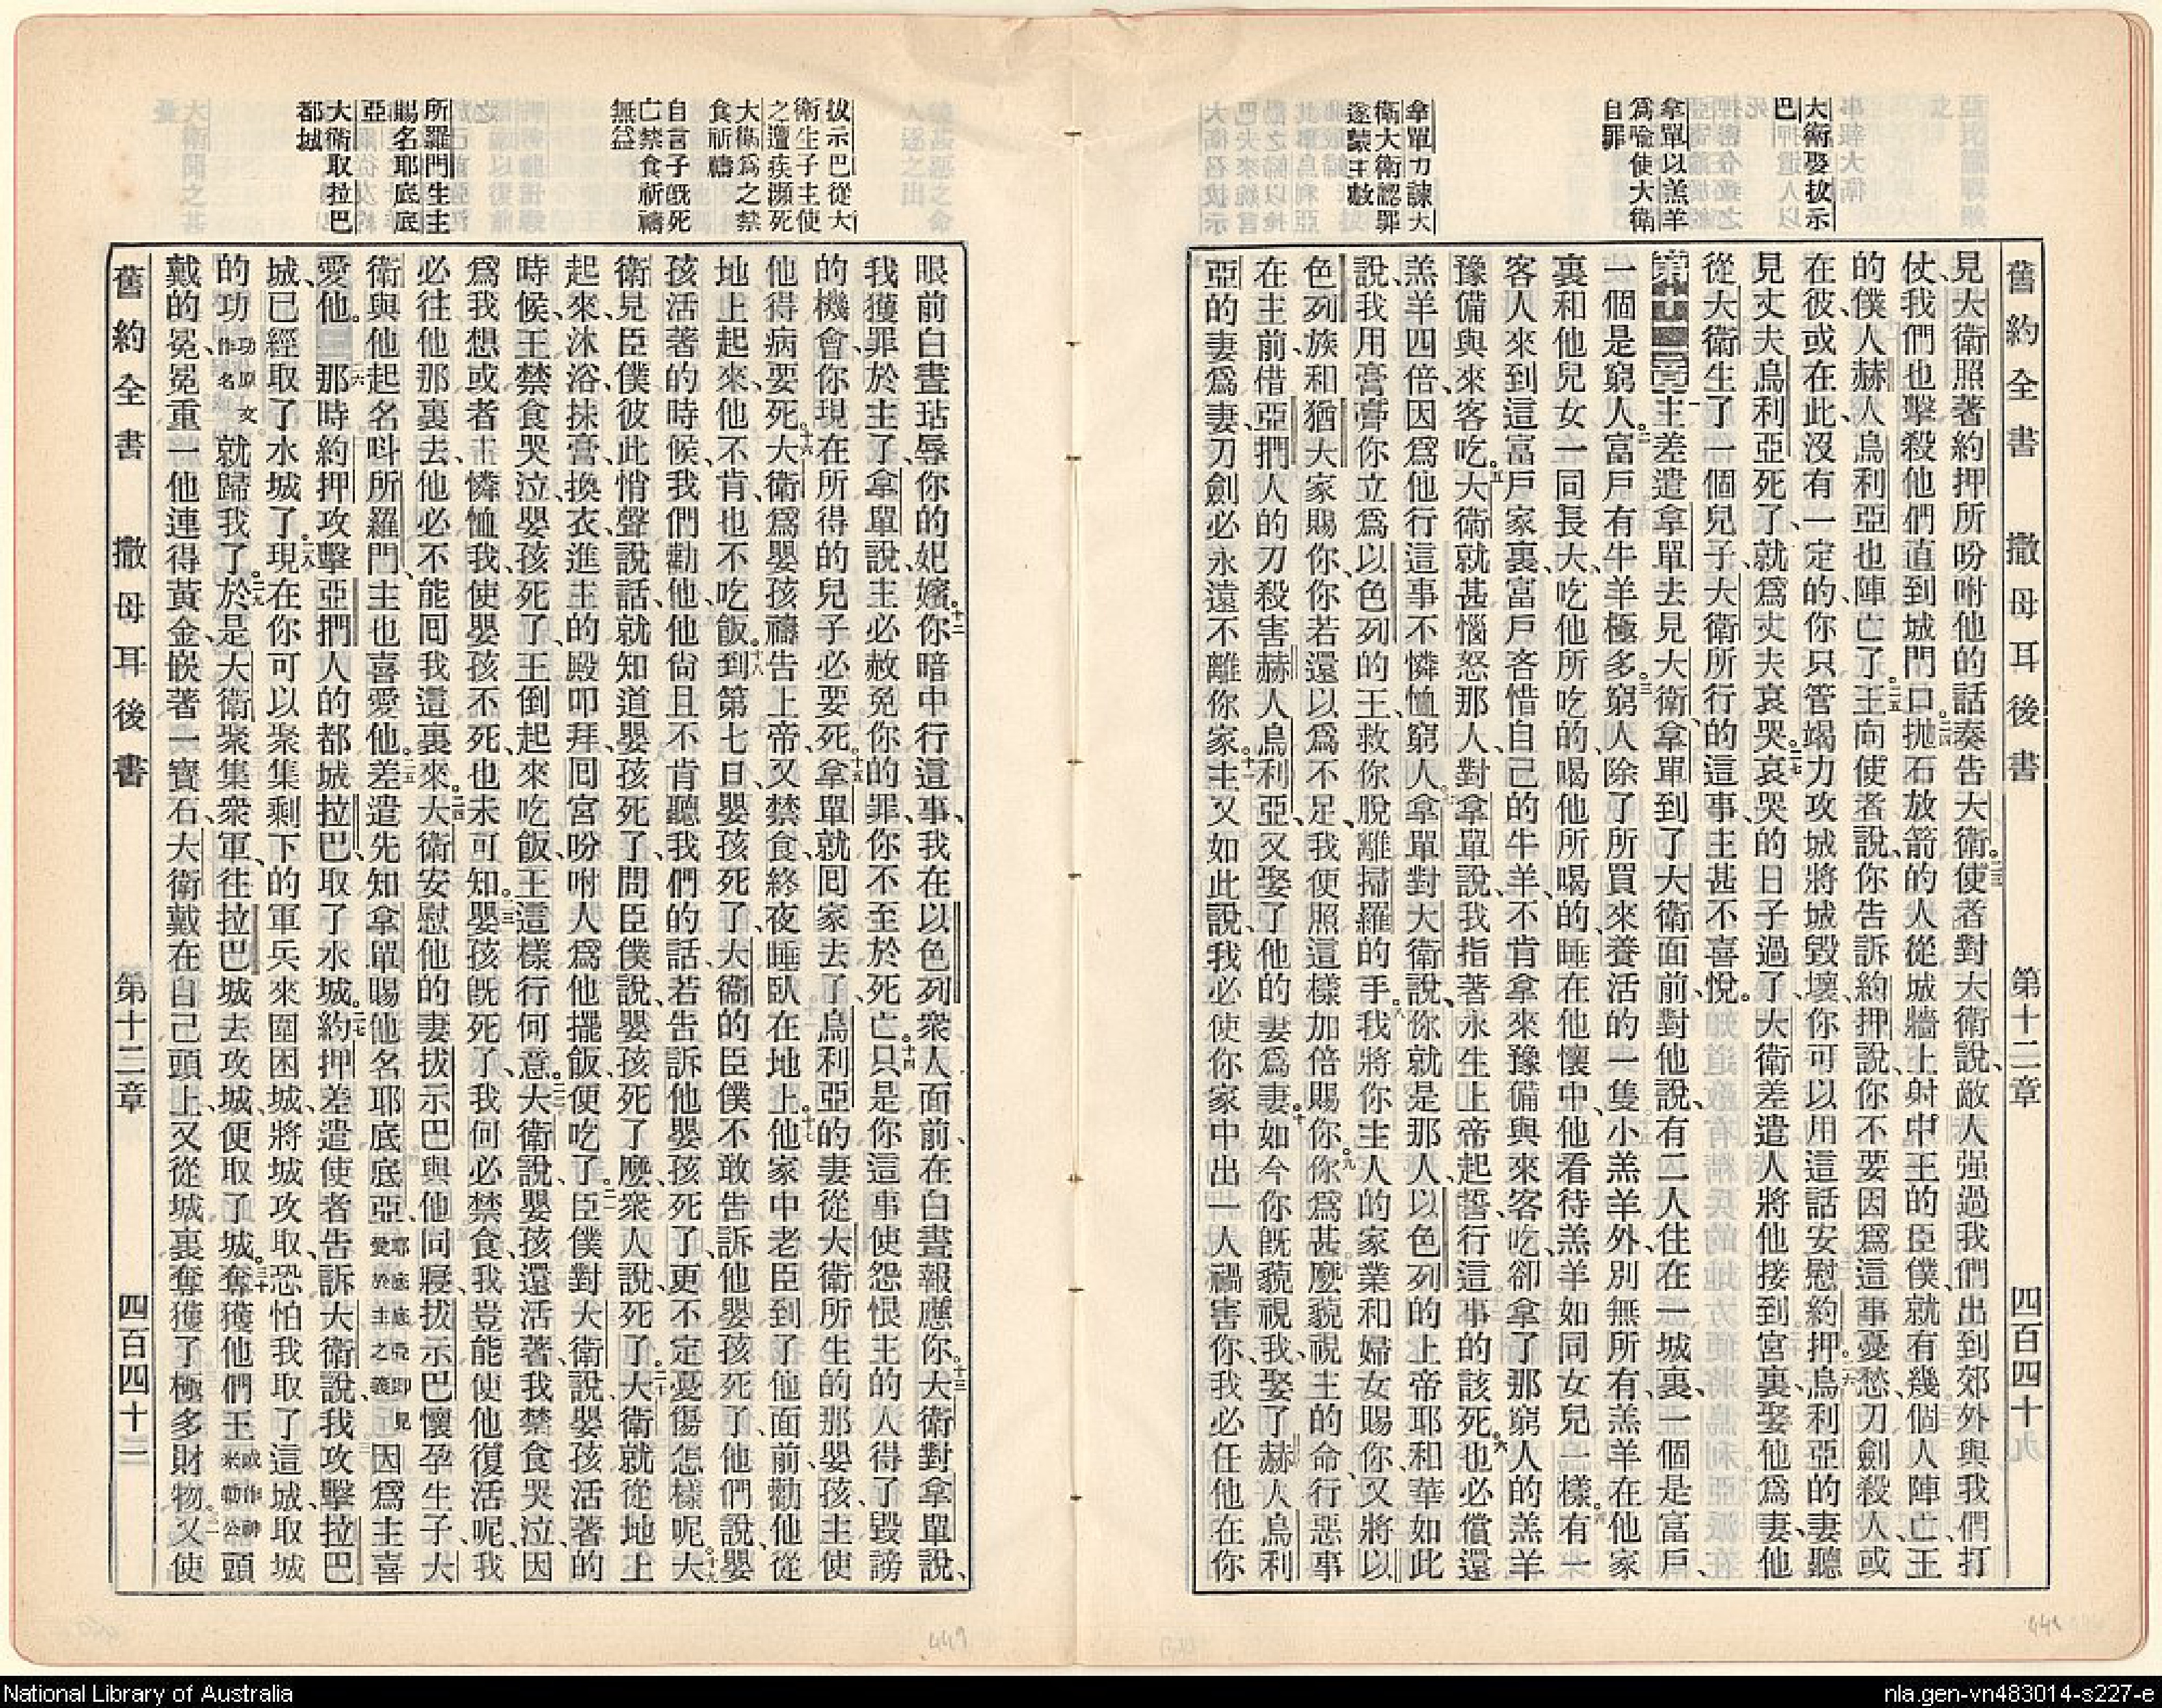 舊約全書 撒母耳後書 第十二章 四百四十
大衛娶拔示
巴
拿單以羔羊
爲喻使大衛
自罪
拿單力諫大
衛大衛認罪
遂蒙主赦
見大衛照著約押所吩咐他的話奏告大衛。二三使者對大衛說、敵人强過我們出到郊外與我們打
仗、我們也擊殺他們直到城門口。二四拋石放箭的人從城牆上射中王的臣僕、就有幾個人陣亡、王
的僕人赫人烏利亞也陣亡了。二五王向使者說、你告訴約押說、你不要因爲這事憂愁、刀劍殺人、或
在彼、或在此、沒有一定的、你只管竭力攻城將城毀壞、你可以用這話安慰約押。二六烏利亞的妻聽
見丈夫烏利亞死了、就爲丈夫哀哭。二七哀哭的日子過了、大衛差遣人將他接到宮裏、娶他爲妻、他
從大衛生了一個兒子、大衛所行的這事、主甚不喜悅。
第十二章一主差遣拿單去見大衛、拿單到了大衛面前、對他說、有二人住在一城裏、一個是富戶、
一個是窮人。二富戶有牛羊極多。三窮人除了所買來養活的一隻小羔羊外、別無所有、羔羊在他家
裏和他兒女一同長大、吃他所吃的、喝他所喝的、睡在他懷中、他看待羔羊如同女兒一樣。四有一
客人來到這富戶家裏、富戶吝惜自己的牛羊、不肯拿來豫備與來客吃、卻拿了那窮人的羔羊
豫備與來客吃。五大衛就甚惱怒那人、對拿單說、我指著永生上帝起誓、行這事的該死也。六必償還
羔羊四倍、因爲他行這事不憐恤窮人。七拿單對大衛說、你就是那人、以色列的上帝耶和華如此
說、我用膏膏你立爲以色列的王、救你脫離掃羅的手。八我將你主人的家業和婦女賜你、又將以
色列族和猶大家賜你、你若還以爲不足、我便照這樣加倍賜你。九你爲甚麼藐視主的命、行惡事
在主前、借亞捫人的刀殺害赫人烏利亞、又娶了他的妻爲妻。十如今你旣藐視我、娶了赫人烏利
亞的妻爲妻、刀劍必永遠不離你家。十一主又如此說、我必使你家中出一人禍害你、我必任他在你
拔示巴從大
衛生子主使
之遭疾瀕死
大衛爲之禁
食祈禱
自言子旣死
亡禁食祈禱
無益
所羅門生主
賜名耶底底
亞
大衛取拉巴
都城
眼前白晝玷辱你的妃嬪。十二你暗中行這事、我在以色列衆人面前、在白晝報應你。十三大衛對拿單說、
我獲罪於主了、拿單說、主必赦免你的罪、你不至於死亡。十四只是你這事使怨恨主的人得了毀謗
的機會、你現在所得的兒子必要死。十五拿單就回家去了、烏利亞的妻從大衛所生的那嬰孩、主使
他得病要死。十六大衛爲嬰孩禱告上帝、又禁食、終夜睡臥在地上。十七他家中老臣到了他面前、勸他從
地上起來、他不肯、也不吃飯。十八到第七日嬰孩死了、大衛的臣僕不敢告訴他嬰孩死了、他們說、嬰
孩活著的時候、我們勸他、他尙且不肯聽我們的話、若告訴他嬰孩死了、更不定憂傷怎樣呢。十九大
衛見臣僕彼此悄聲說話、就知道嬰孩死了、問臣僕說、嬰孩死了麼、衆人說、死了。二十大衛就從地上
起來、沐浴、抹膏、換衣、進主的殿叩拜、回宮吩咐人爲他擺飯、便吃了。二一臣僕對大衛說、嬰孩活著的
時候、王禁食哭泣、嬰孩死了、王倒起來吃飯、王這樣行何意。二二大衛說、嬰孩還活著、我禁食哭泣、因
爲我想或者主憐恤我、使嬰孩不死、也未可知。二三嬰孩旣死了、我何必禁食、我豈能使他復活呢、我
必往他那裏去、他必不能回我這裏來。二四大衛安慰他的妻拔示巴、與他同寢、拔示巴懷孕生子、大
衛與他起名呌所羅門、主也喜愛他。二五差遣先知拿單賜他名耶底底亞、耶底底亞卽見愛於主之義因爲主喜
愛他。二六那時約押攻擊亞捫人的都城拉巴、取了水城。二七約押差遣使者告訴大衛說、我攻擊拉巴
城、已經取了水城了。二八現在你可以聚集剩下的軍兵來圍困城、將城攻取、恐怕我取了這城、取城
的功、功原文作名就歸我了。二九於是大衛聚集衆軍、往拉巴城去攻城、便取了城。三十奪獲他們王或作神米勒公頭
戴的冕、冕重一他連得黃金、嵌著一寶石、大衛戴在自己頭上、又從城裏奪獲了極多財物。三一又使
舊約全書 撒母耳後書 第十二章 四百四十二
449
National Library of Australia
nla.gen-vn483014-s227-e